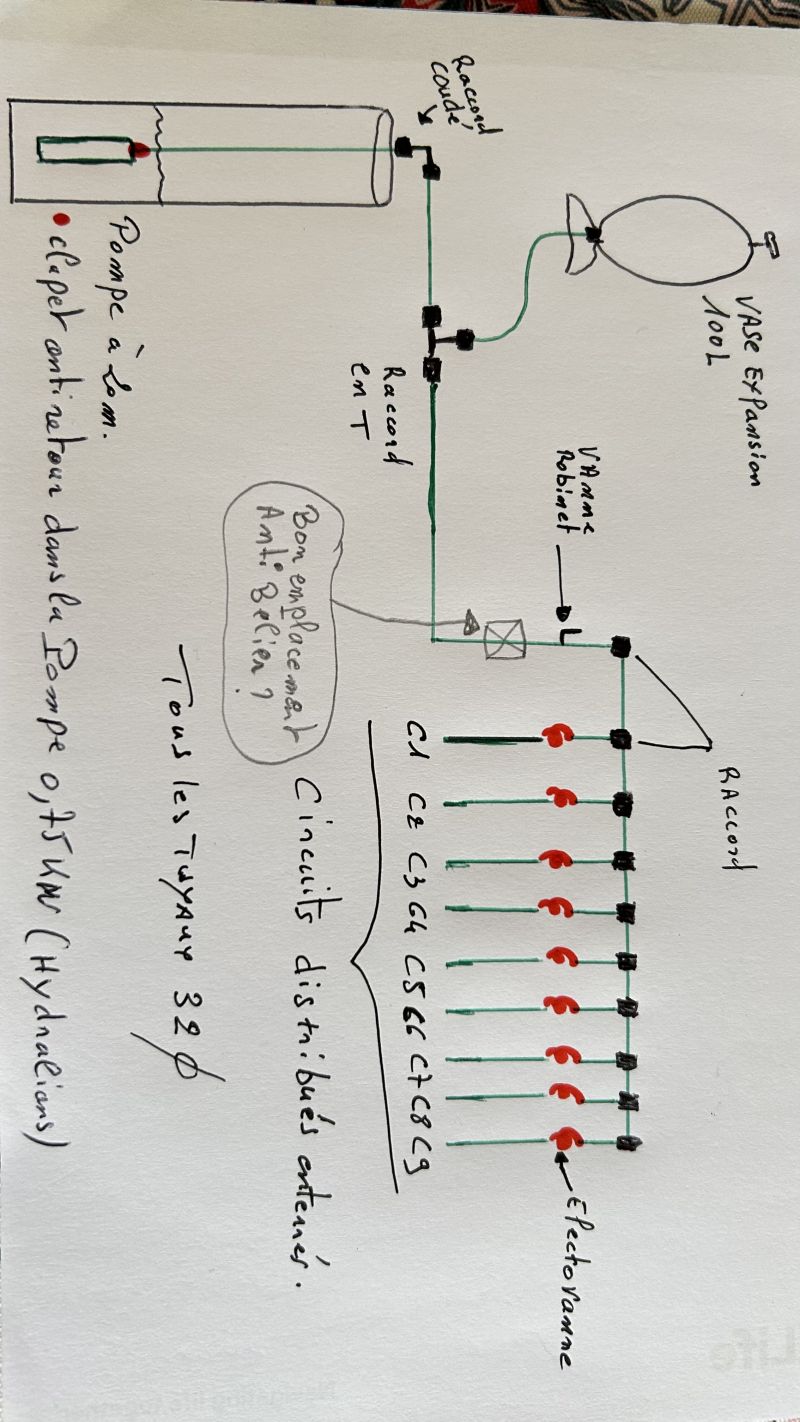 VASE EXPANSION
100L
Raccord
coudé
Vanne
Robinet
RAccord
Raccord
en T
Bon emplacement
Anti Belier ?
C1 C2 C3 C4 C5 C6 C7 C8 C9
Electovanne
Circuits distribués enterrés.
Tous les Tuyaux 32 ϕ
Pompe à
• clapet antiretour dans la Pompe 0,75 KW (Hydralians)
Life